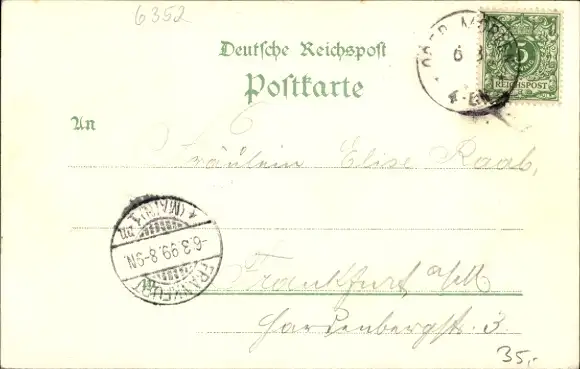 6352
Deutsche Reichspost
Postkarte
5
REICHSPOST
OBER
6 3
An
Fräulein Elise Raab,
(MAIN) 1
-6.3.99.8-9N.
FRANKFURT
Frankfurt a/M
Hardenbergstr. 3.
35,-